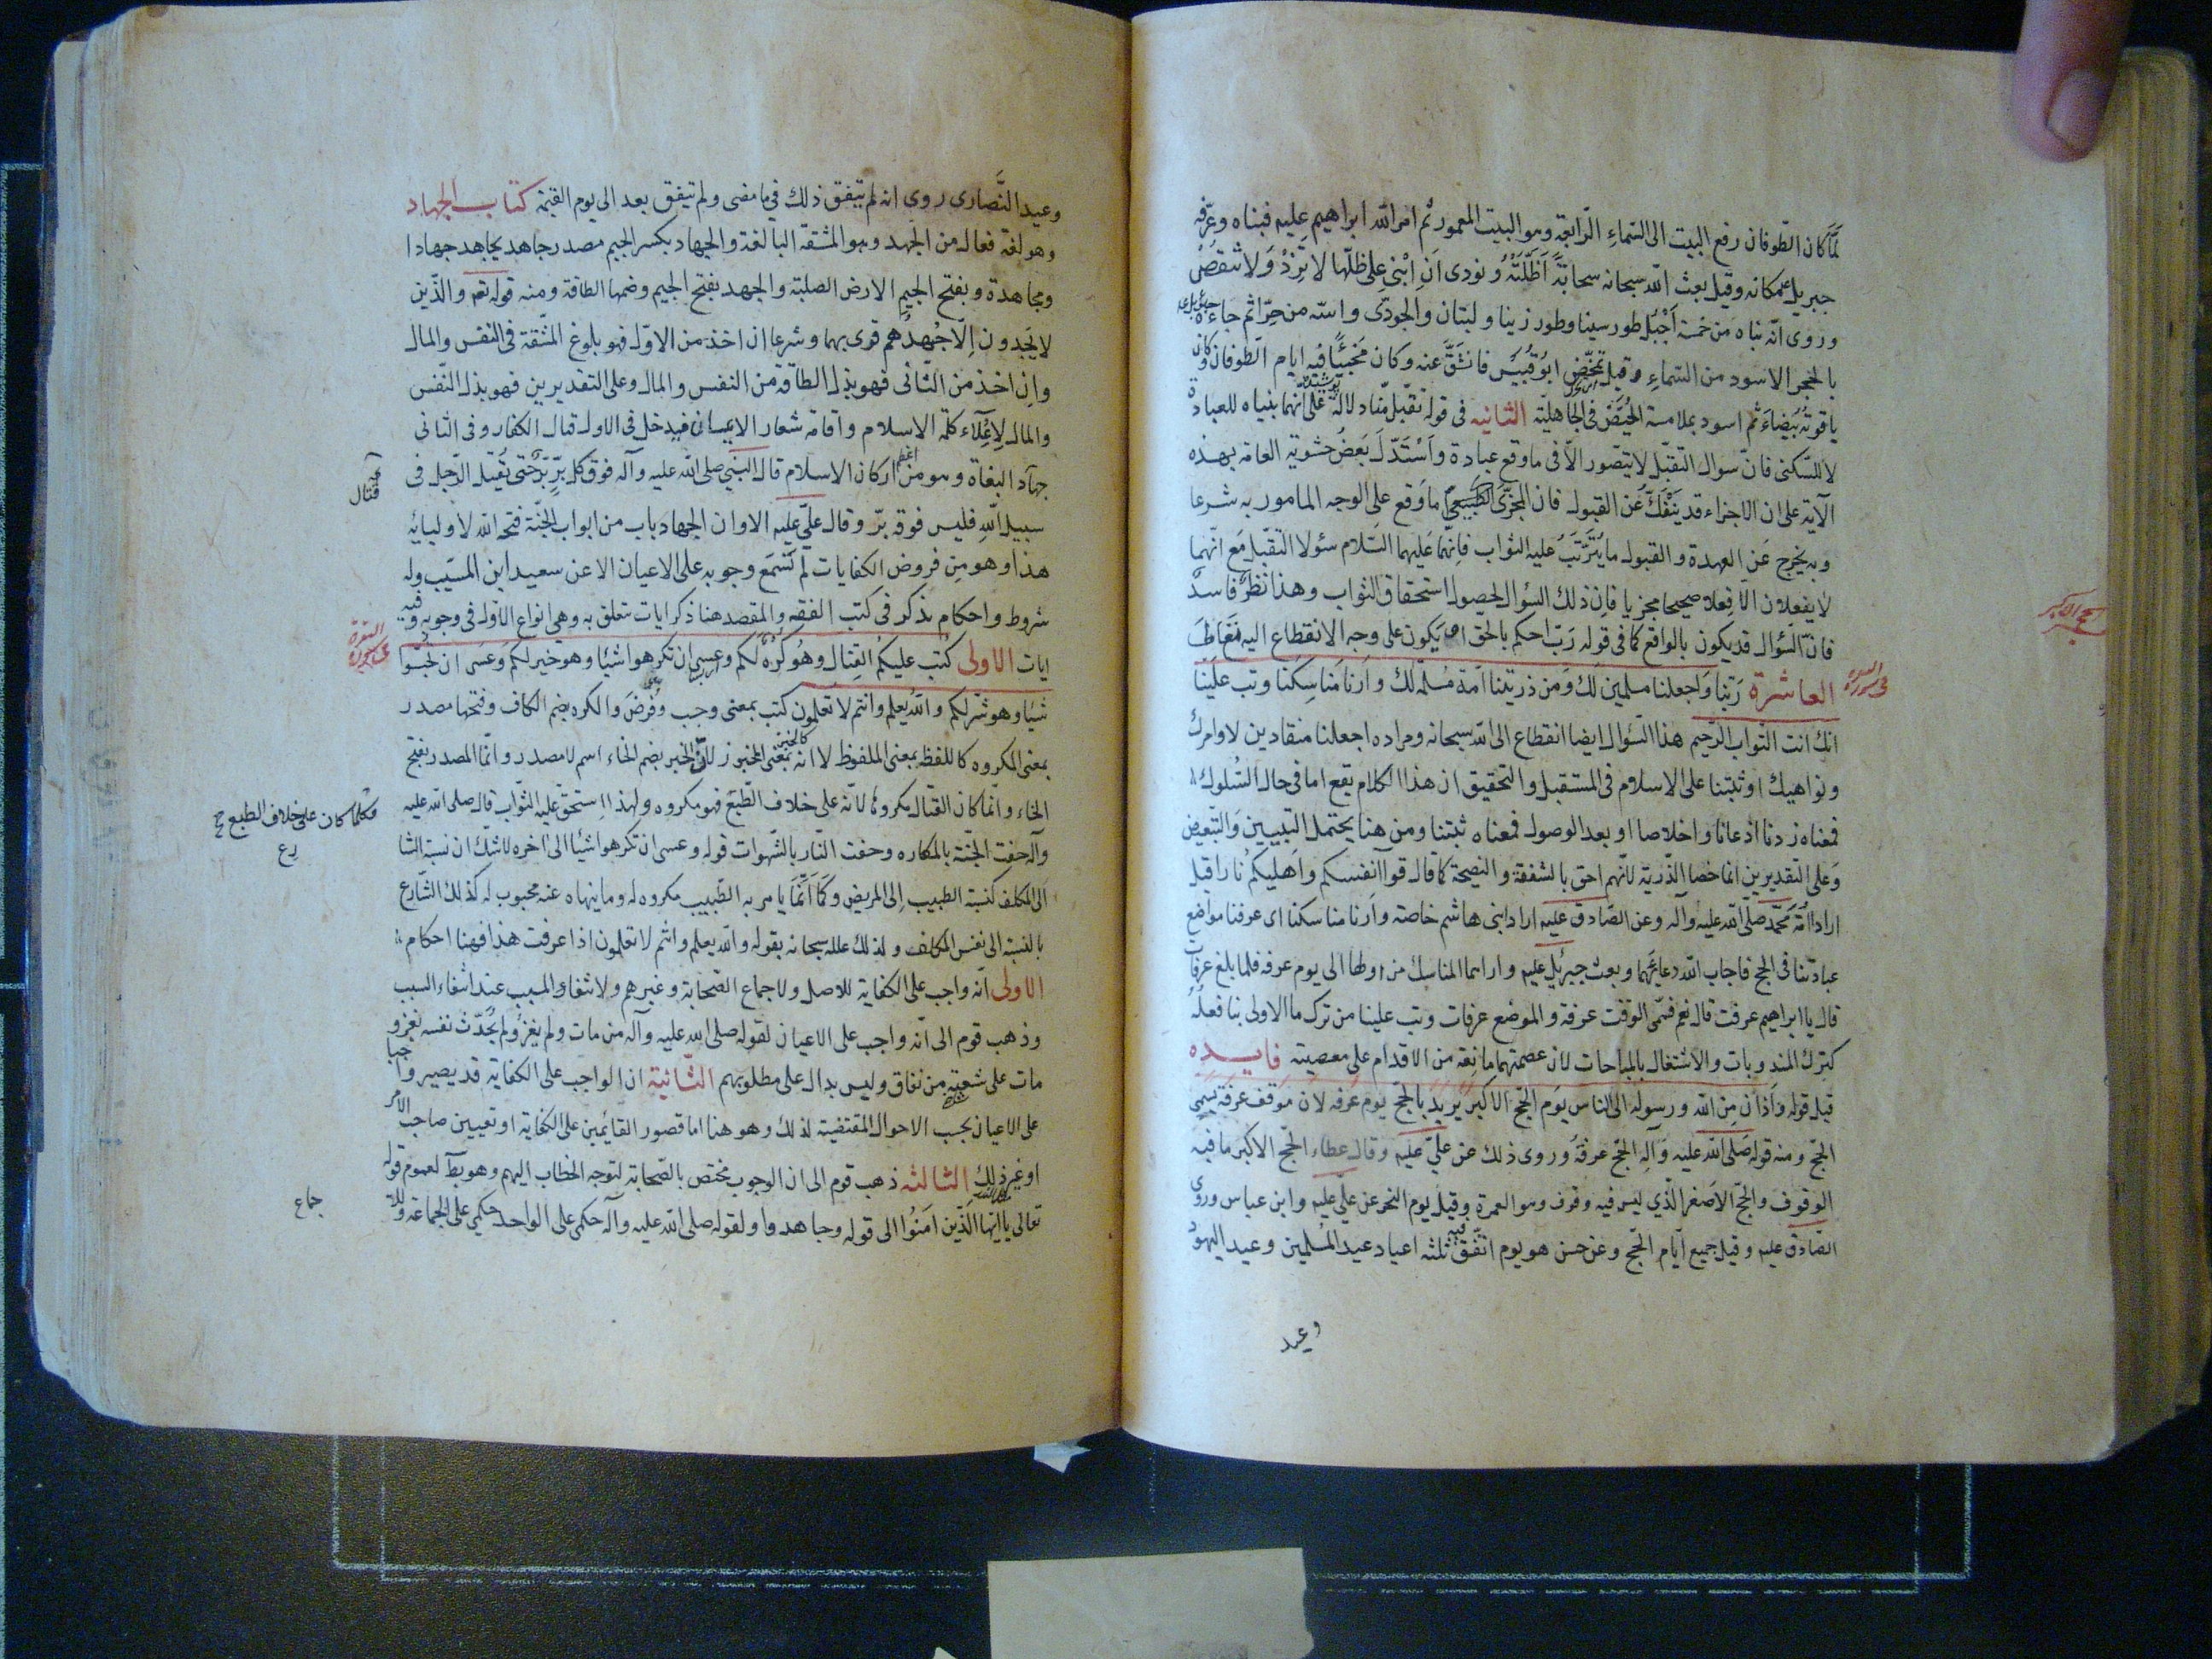 لمّا كان الطوفان رفع البيت الى السّماءِ الرّابعة وهو البيت المعمور ثم امر الله ابراهيم عليه فبناه وعرّفه
جبريل عمكانه وقيل بعث اللّه سبحانه سحابةً اَظَلَّتْهُ ونودى اَنِ ابْنِ على ظلّها لا تزِدْ وَلا تنقصْ
وروى انّه بناه من خمسة اَجْبُل طور سينا وطور زيتا ولبنان والجودى واسّه من حِرّا ثم جاءه جبرئيل
بالحجر الاسود من السّماءِ وقيل تمخّض ابوقُبَيس فانشَقّ عنه وكان مَخبيّا فيه ايام الطّوفان وكان
ياقوتة بَيضاءَ ثُم اسود بملامسة الحُيَّض فى الجاهليّة الثانيه فى قوله تقبّل منّا دلالة على انّهما بنياه للعبادة
لا للسّكنى فانّ سوال التّقبّل لا يتصور الاّ فى ما وقع عبادة واَسْتدَلَّ بَعضُ حشوية العامة بهذه
الآية على ان الاجزاء قد ينْفَكّ عَن القبول فان المجزى ما وَقع على الوجه المامور به شرعا
وبه يخرج عَن العهدة والقبول ما يَتَرتّبُ عليه الثواب فاِنّهما عَليهما السّلام سئولا التّقبّل مَع انّهما
لا يفعلان الاّ فعلا صحيحا مجزيا فاِن ذلك السّؤال لحصول استحقاق الثواب وهذا نَظرٌ فاسدٌ
فانّ السّؤال قد يكون بالواقع كما فى قوله رَبّ احكم بالحق او يكون على وجه الانقطاع اليه تَعَاطَ
العاشرة رَبّنا وَاجعلنا مسلمين لكَ وَمن ذريّتنا امّة مُسْلمة لك واَرنا مَناسِكَنا وتب عَلَيْنا
انك انت التّواب الرّحيم هذا السّؤال ايضا انقطاع الى الله سبحانه ومراده اجعلنا منقادين لاوامرك
ونواهيك او ثبّتنا على الاسلام فى المستقبل والتحقيق ان هذا الكلام يقع اما فى حال السّلوك
فمعناه زدنا اذعانا واخلاصا او بعد الوصول فمعناه ثبّتنا ومن هنا يحتمل التبيين وَالتّبعيض
وَعلى التّقديرين انما خصّا الذّرية لانّهم احق بالشفقة والنصيحة كما قال قوا اَنفسكم واَهليكم نارا قيل
اراد امّة محمّد صلى الله عليه وآله وعن الصّادق عليه اراد بنى هاشم خاصة وَارنا مناسكنا اى عرفنا مواضع
عباداتنا فى الحج فاجاب اللّه دعائهما وبعث جبرئيل عليه واراهما المناسك من اولها الى يوم عرفه فلما بلغ عرفات
قال يا ابراهيم عرفت قال نعم فسُمّى الوقت عرفة والموضع عرفات وتب علينا من ترك ما الاولى بنا فعلُهُ
كترك المندوبات والاشتغال بالمباحات لان عصمتهما مانعة من الاقدام على معصيته فايده
قيل قوله وَاَذانٌ مِنَ اللّه ورسوله الى الناس يَوم الحجّ الاكبر يريد بالحجّ يوم عَرفه لانّ موقف عرفة يسمى
الحجّ ومنه قوله صَلى الله عليه وَآله الحجّ عرفة وروى ذلك عن علىّ عليه وقال عطاء الحجّ الاكبر ما فيه
الوقوف والحجّ الاَصغر الّذي ليس فيه وقوف وهو العمرة وقيل يوم النّحر عن علىّ عليه وابن عباس وروى
الصّادق عليه وقيل جميع ايّام الحجّ وعن حسن هو يوم اتّفق فيه ثلثه اعياد عيد المُسلمين وعيد اليهود
وعيد
وعيد النَّصارى روى انه لم يتفق ذلك فيما مضى ولم يتفق بعد الى يوم القيمة كتاب الجهاد
وهو لغة فعال من الجهد وهو المشقّة البالغة والجهاد بكسر الجيم مصدر جاهد يجاهد جهادا
ومجاهدة وبفتح الجيم الارض الصلبة والجهد بفتح الجيم وضمها الطاقة ومنه قوله تعم والّذين
لا يَجدون اِلاّ جُهدهُم قرئ بهما وشرعا ان اخذ من الاوّل فهو بلوغ المشقّة فى النّفس والمال
وان اخذ من الثّانى فهو بذل الطاقة من النفس والمال وعلى التقديرين فهو بذل النّفس
والمال لاِعْلاَءِ كلمة الاسلام واقامة شعار الايمان فيدخل فى الاول قتال الكفار وفى الثانى
جهاد البغاة وهو من اعظم اركان الاسلام قال النّبى صلى الله عليه وآله فوق كل برٍّ بِرّ حتى يُقتل الرّجل فى
سبيل اللّهِ فليس فوقه برّ وقال علىّ عليه الا وان الجهاد باب من ابواب الجنّة فتحه الله لاوليائه
هذا وهو مِن فروض الكفايات لم نَسْمَع وجوبه على الاعيان الا عن سعيد ابن المسيّب وله
شروط واحكام يذكر فى كتب الفقه والمقصد هنا ذكر ايات تتعلق به وهى انواع الاوّل فى وجوبه وفيه
ايات الاولى كُتب عليكم القِتال وهُوَ كُرْهٌ لكم وعسى ان تكرهوا شيئا وهو خير لكم وعسَى ان تحبّوا
شيئا وهو شرّ لكم واللّه يعلم وانتم لا تعلمون كتب بمعنى وجب وفُرِضَ والكره بضم الكاف وفتحها مصدر
بمعنى المكروه كاللفظ بمعنى الملفوظ لا انه كالخبز بمعنى المخبوز لانّ الخبز بضم الخاء اسم لا مصدر وانّما المصدر بفتح
الخاء وانّما كان القتال مكروها لانّه على خلاف الطّبع فهو مكروه ولهذا استحقّ عليه الثّواب قال صلى الله عليه
وآله حفت الجنّة بالمكاره وحفت النّار بالشّهوات قوله وعسى ان تكرهوا شيئا الى اخره لا شكّ ان نسبة الشا
الى المكلف كنسبة الطبيب اِلى المريض وكَمَا اَنّمَا يامر به الطّبيب مكروه له وما ينهاه عنه محبوب له كذلك الشّارع
بالنسبة الى نفس المكلف ولذلك علله سبحانه بقوله واللّه يعلم وانتم لا تعلمون اذا عرفت هذا فهنا احكام
الاولى انّه واجب على الكفاية للاصل ولاجماع الصّحابة وغيرهم ولانتفاء المسبب عند انتفاء السبب
وذهب قوم الى انّه واجب على الاعيان لقوله صلى الله عليه وآله من مات ولم يغز ولم يُحدّث نفسه بغزو
مات على شعبةٍ من نفاق وليس بدال على مطلوبهم الثّانية ان الواجب على الكفاية قد يصير واجبا
على الاعيان بحسب الاحوال المقتضية لذلك وهو هنا اما قصور القايمين على الكفاية او تعيين صاحب الامر
او غير ذلك الثالثه ذهب قوم الى ان الوجوب مختص بالصّحابة لتوجه الخطاب اليهم وهو بط لعموم قوله
تعالى يا ايّها الّذين امَنُوا الى قوله وجاهدوا ولقوله صلى الله عليه وآله حكمى على الواحد حكمى على الجماعة وللا
قتال
فكلما كان على خلاف الطبع
جماع